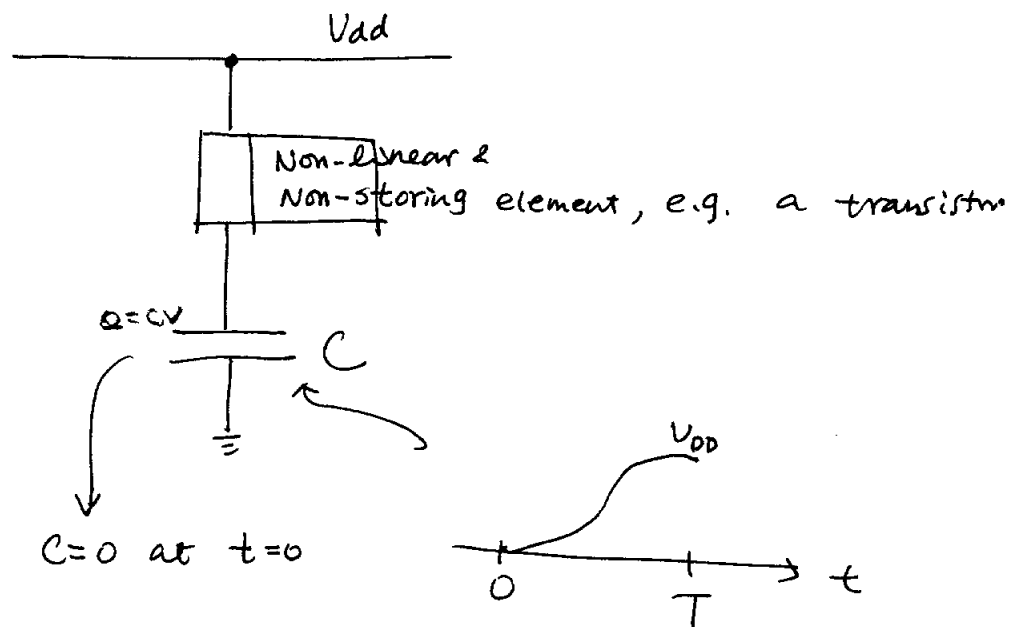 Vdd
Non-linear &
Non-storing element, e.g. a transistor
Q=CV
C
VDD
C=0 at t=0
0
T
t